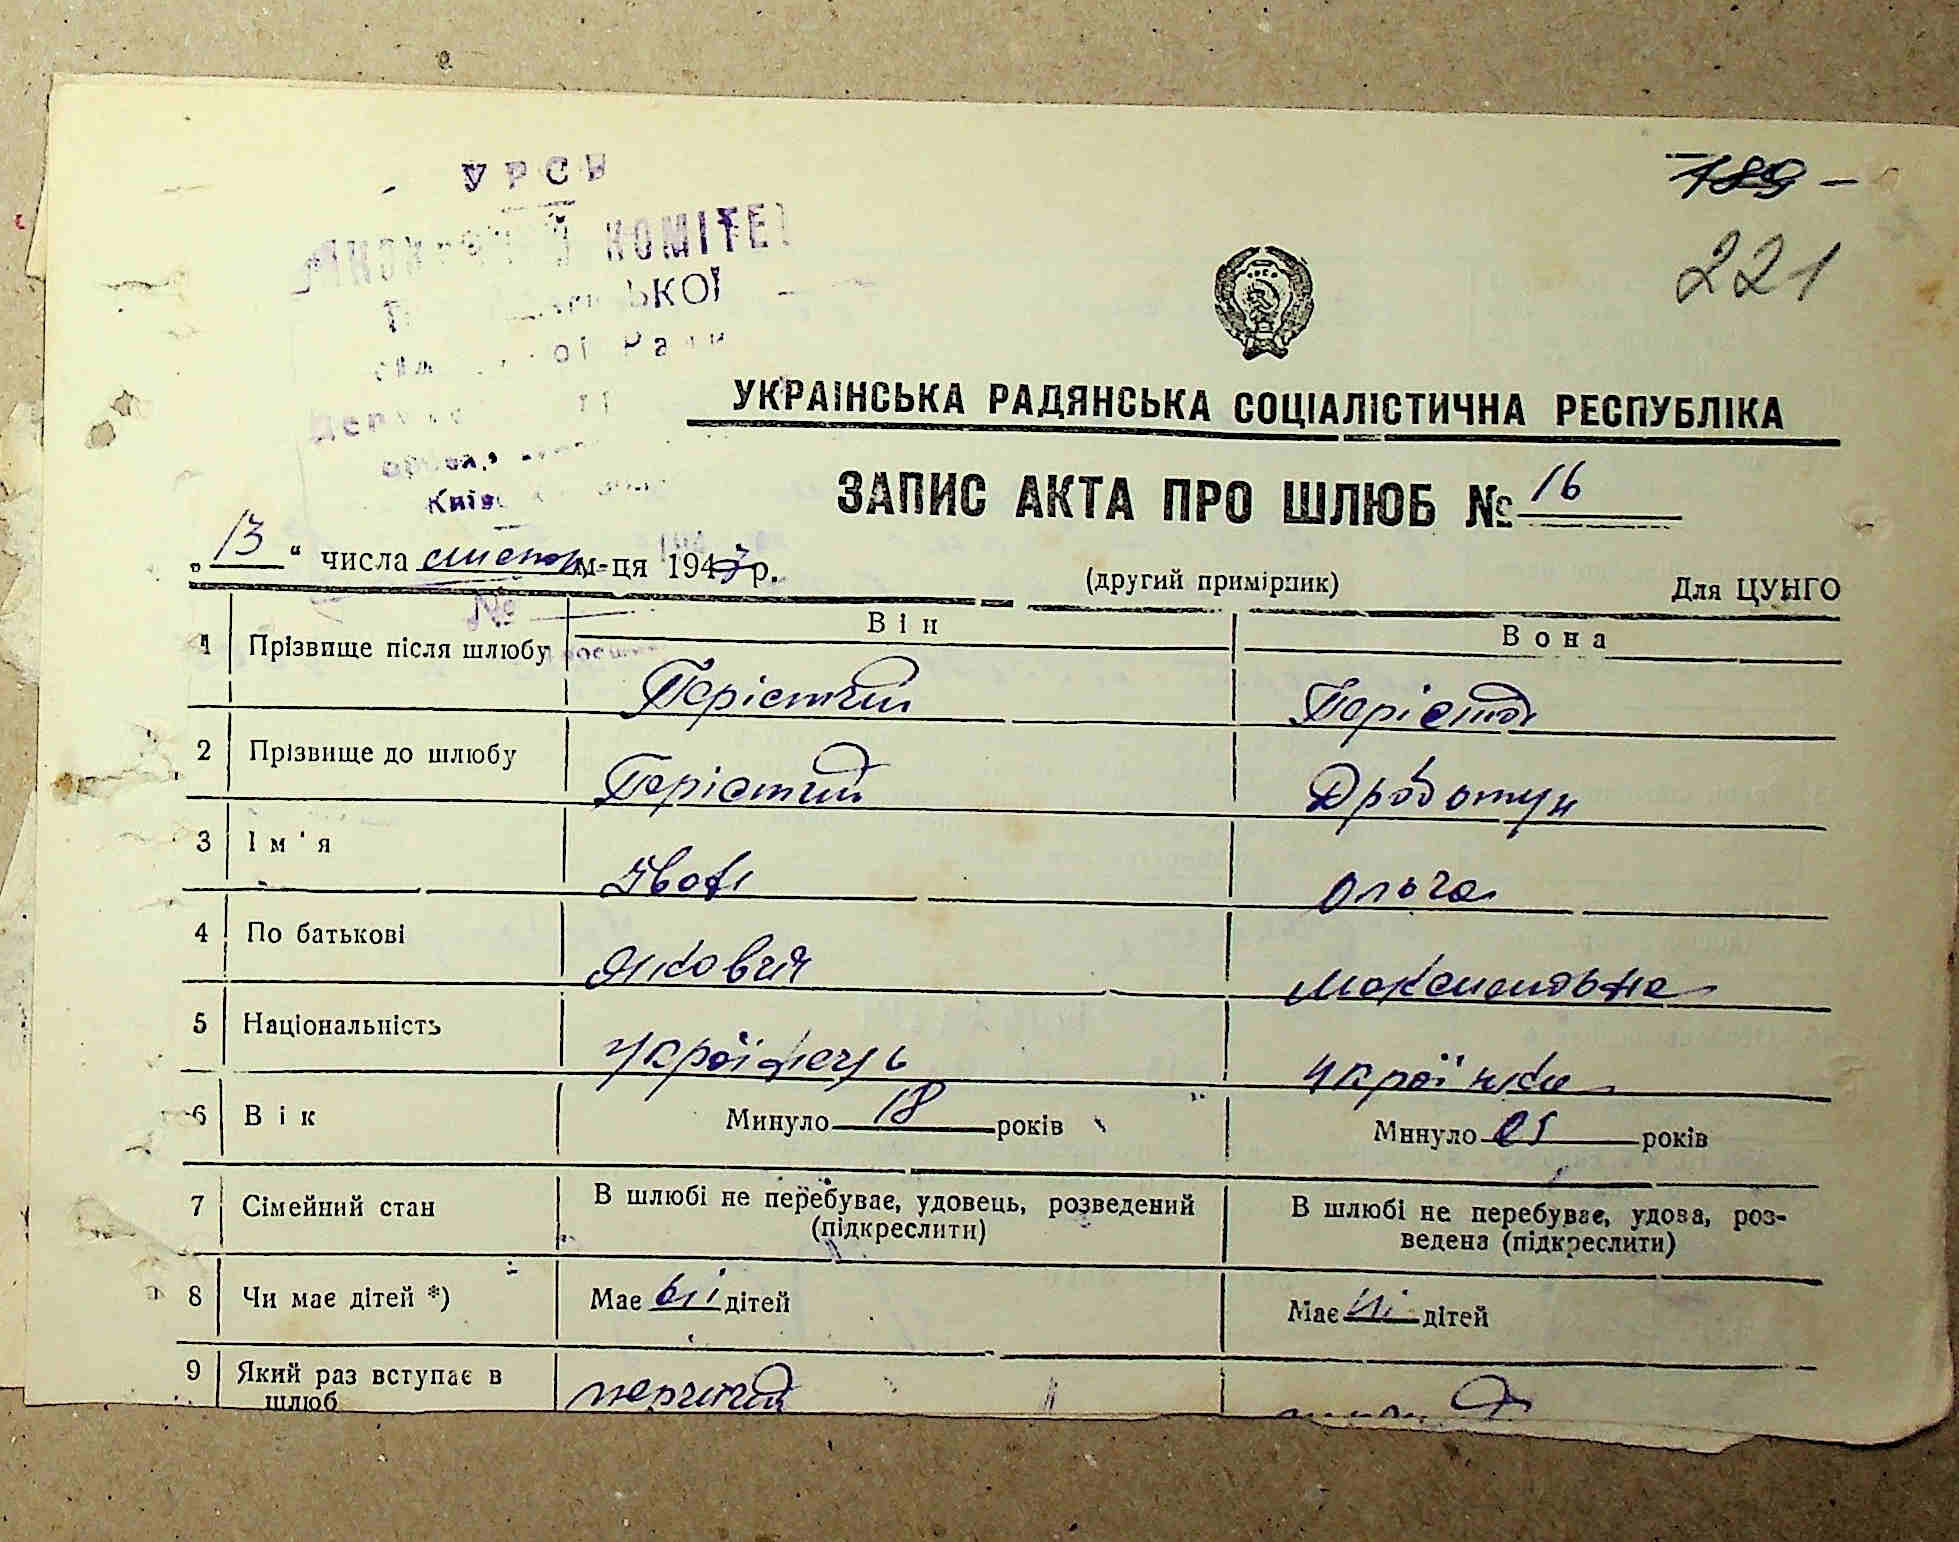 УРСР
КОМІТЕТ
189 -
221
УКРАЇНСЬКА РАДЯНСЬКА СОЦІАЛІСТИЧНА РЕСПУБЛІКА
ЗАПИС АКТА ПРО ШЛЮБ № 16
„13“ числа листоп м-ця 1947 р. (другий примірник) Для ЦУНГО
Він Вона
1 Прізвище після шлюбу
2 Прізвище до шлюбу Дроботун
3 Ім'я Іван Ольга
4 По батькові Якович Максимовна
5 Національність українець українка
6 Вік Минуло 18 років Минуло 21 років
7 Сімейний стан В шлюбі не перебуває, удовець, розведений (підкреслити) В шлюбі не перебуває, удова, роз-
ведена (підкреслити)
8 Чи має дітей *) Має ні дітей Має ні дітей
9 Який раз вступає в
шлюб перший